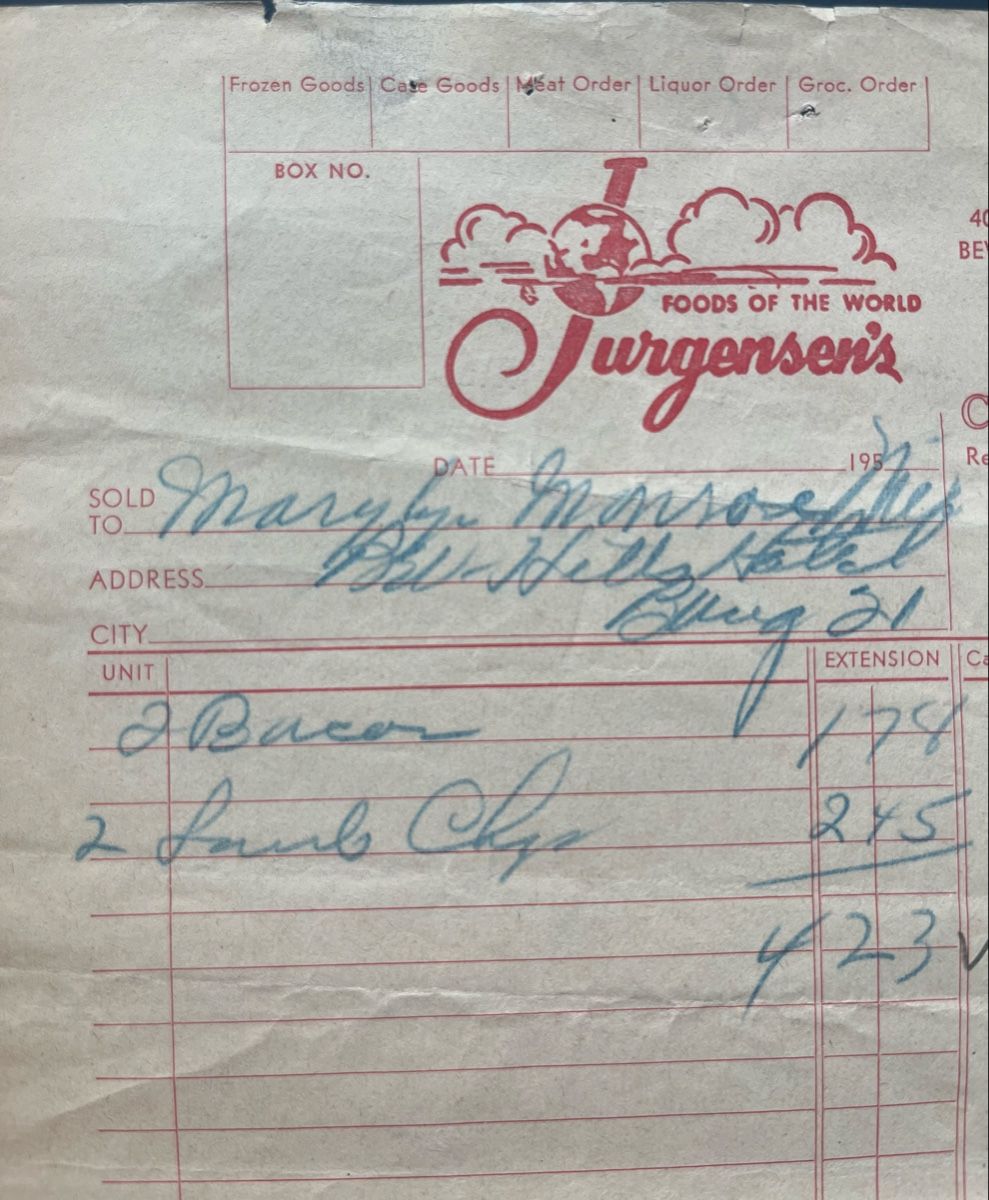 Frozen Goods Case Goods Meat Order Liquor Order Groc. Order
BOX NO.
40
BEV
FOODS OF THE WORLD
Jurgensen's
C
DATE 195
Re
SOLD TO Marylyn Monroe
ADDRESS Bev Hills Hotel
CITY Bung 21
UNIT EXTENSION Ca
2 Bacon 178
2 Lamb Chps 245
423